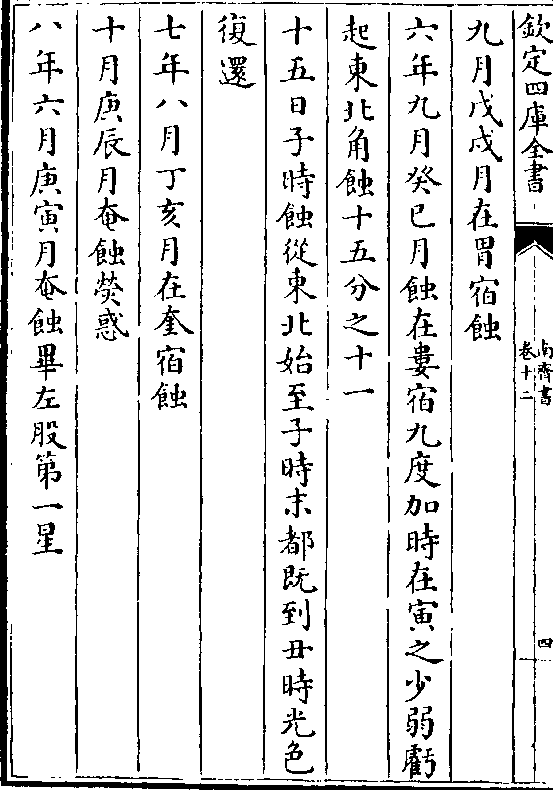 欽定四庫全書
南齊書
卷十二
四
九月戊戌月在胃宿蝕
六年九月癸巳月蝕在婁宿九度加時在寅之少弱虧
起東北角蝕十五分之十一
十五日子時蝕從東北始至子時末都既到丑時光色
復還
七年八月丁亥月在奎宿蝕
十月庚辰月奄蝕熒惑
八年六月庚寅月奄蝕畢左股第一星